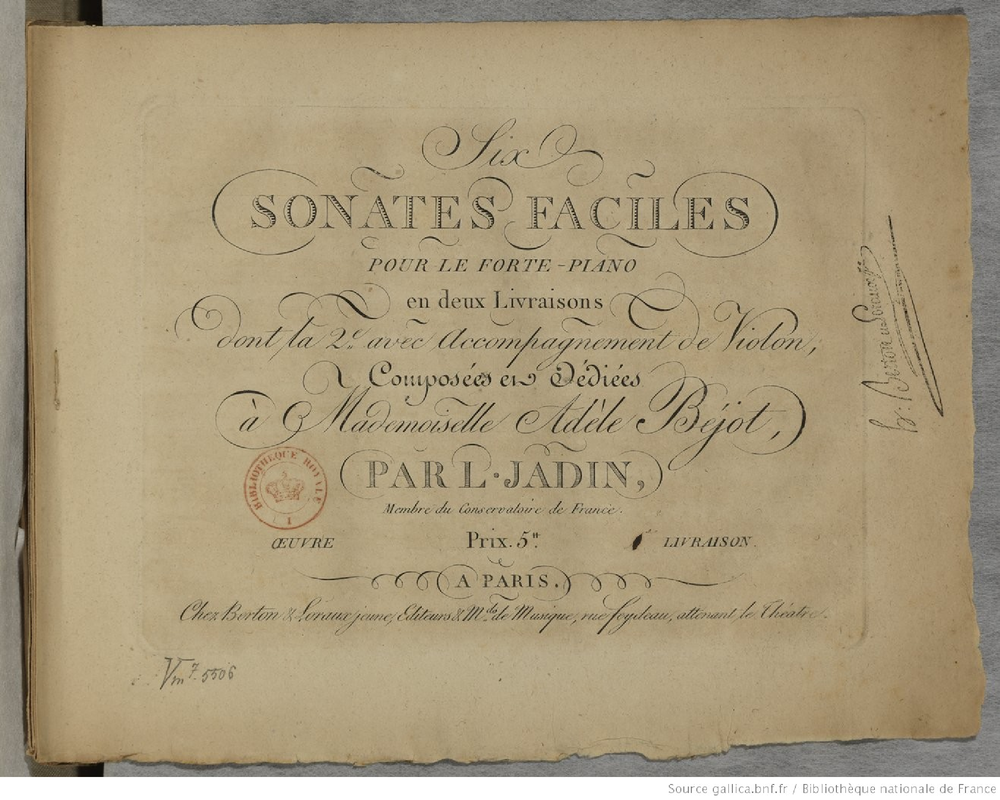 Six
SONATES FACILES
POUR LE FORTE-PIANO
en deux Livraisons
dont la 2e. avec Accompagnement de Violon,
Composées et Dédiées
à Mademoiselle Adèle Béjot,
PAR L. JADIN,
Membre du Conservatoire de France.
ŒUVRE Prix. 5tt LIVRAISON.
A PARIS.
Chez Berton & Loraux jeune, Editeurs & Mds. de Musique, rue feydeau, attenant le Théatre.
BIBLIOTHEQUE ROYALE
1
Vm7. 5506
h. Berton Loraux
Source gallica.bnf.fr / Bibliothèque nationale de France